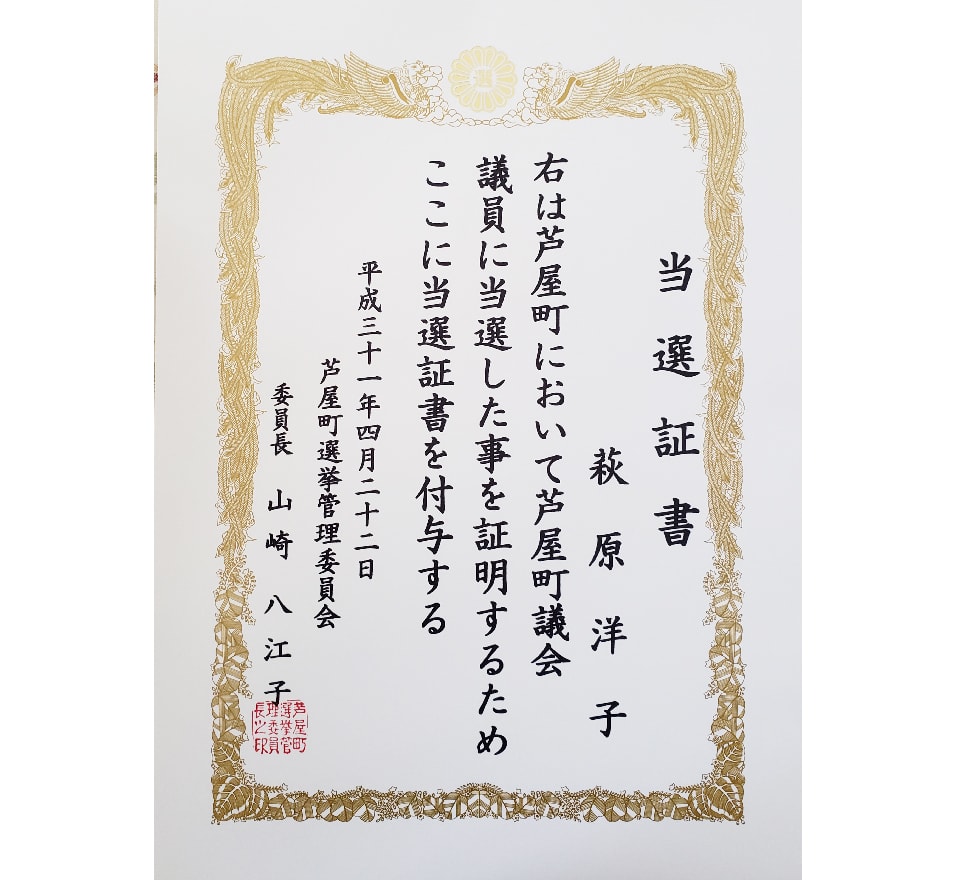 選
当選証書
萩原洋子
右は芦屋町において芦屋町議会
議員に当選した事を証明するため
ここに当選証書を付与する
平成三十一年四月二十二日
芦屋町選挙管理委員会
委員長 山崎八江子
芦屋町
選挙管
理委員
長之印